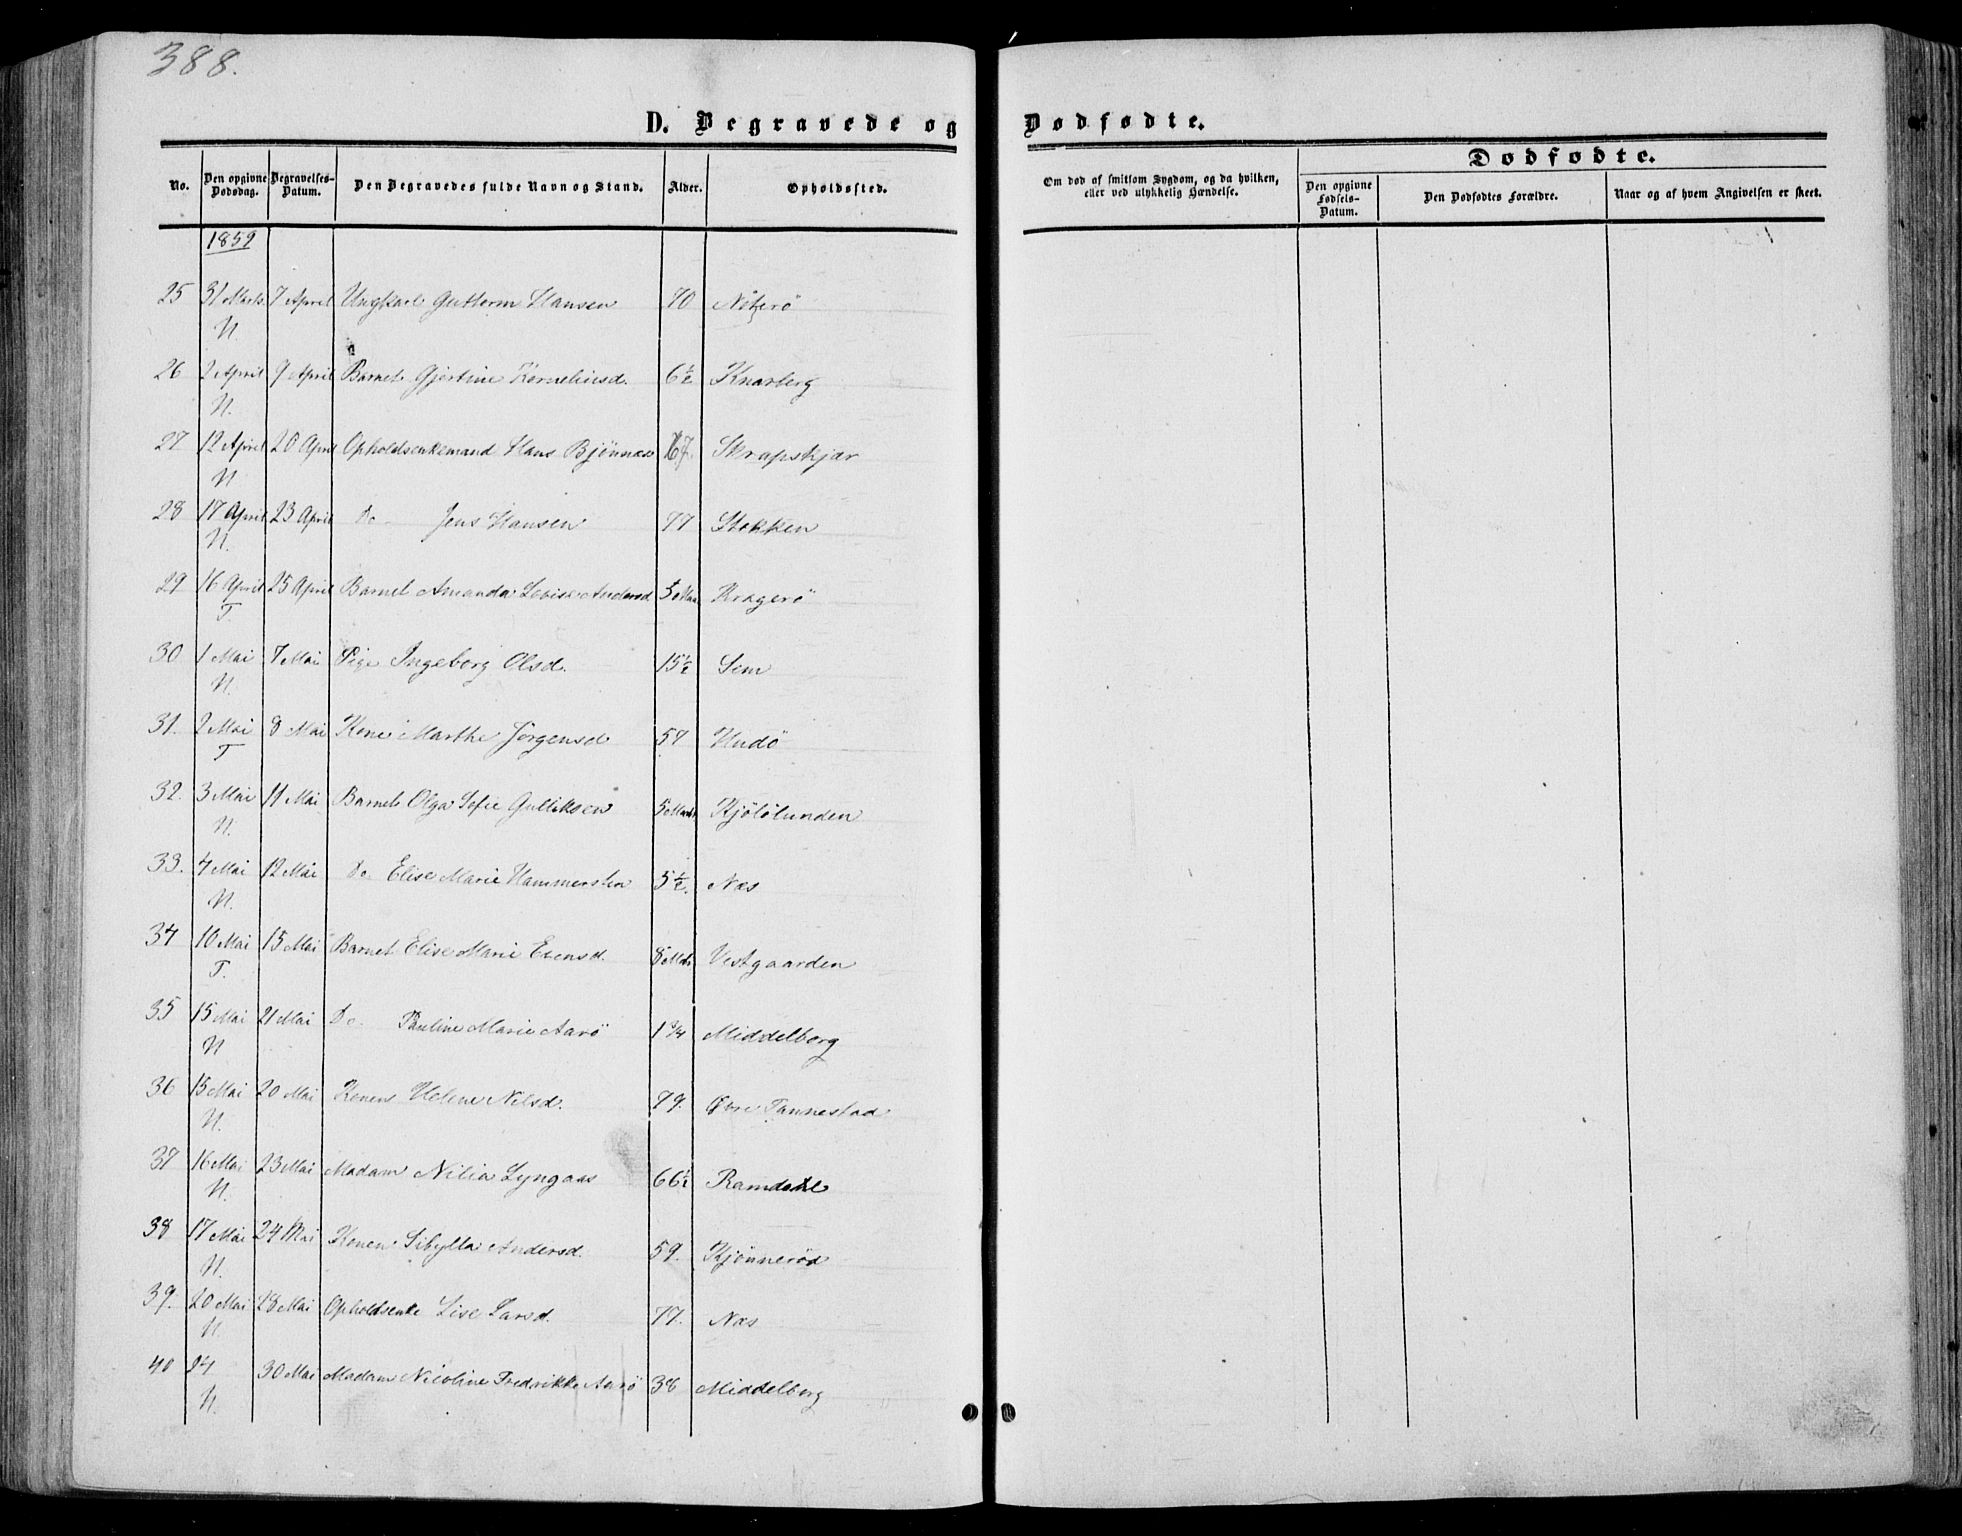 388.
D. Begravede og Dødfødte.
No. Den opgivne Dødsdag. Begravelses-Datum. Den Begravedes fulde Navn og Stand. Alder. Opholdssted.
Om død af smitsom Sygdom, og da hvilken, eller ved ulykkelig Hændelse.
Dødfødte.
Den opgivne Fødsels-Datum. Den Dødfødtes Forældre. Naar og af hvem Angivelsen er skeet.
1859
25 31 Marts 7 April Ungkarl Guttorm Hansen 70 Nøterö
N.
26 2 April 9 April Barnet Gjertine Korneliusd. 6½ Knarberg
N.
27 12 April 20 April Opholdsenkemand Hans Bjönnæs 67. Skrapskjær
N
28 17 April 23 April Do Jens Hansen 77 Stokken
N.
29 16 April 25 April Barnet Amanda Lovise Andersd Kragerö
T.
30 1 Mai 7 Mai Pige Ingeborg Olsd. 15½ Sem
N.
31. 2 Mai 8 Mai Kone Marthe Jörgensd 57 Hudö
T
32. 3 Mai 11 Mai Barnet Olga Sofie Gulliksen Kjölölunden
N.
33. 4 Mai 12 Mai Do. Elise Marie Hammersten 5½. Næs
N.
34 10 Mai 15 Mai Barnet Elise Marie Evensd. 8 Mdr Vestgaarden
T.
35 15 Mai 21 Mai Do. Pauline Marie Aarö 1¾ Middelborg
N
36 15 Mai 20 Mai Konens Helene Nilsd. 79. Øvre Tannestad
N.
37 16 Mai 23 Mai Madam Nilia Lyngaas 66½ Ramdahl
N.
38 17 Mai 24 Mai Konen Sibylla Andersd. 59. Kjönneröd
N.
39. 20 Mai 28 Mai Opholdsenke Lise Larsd. 77. Næs
N.
40 24 30 Mai Madam Nicoline Fredrikke Aarö 38 Middelborg
N.